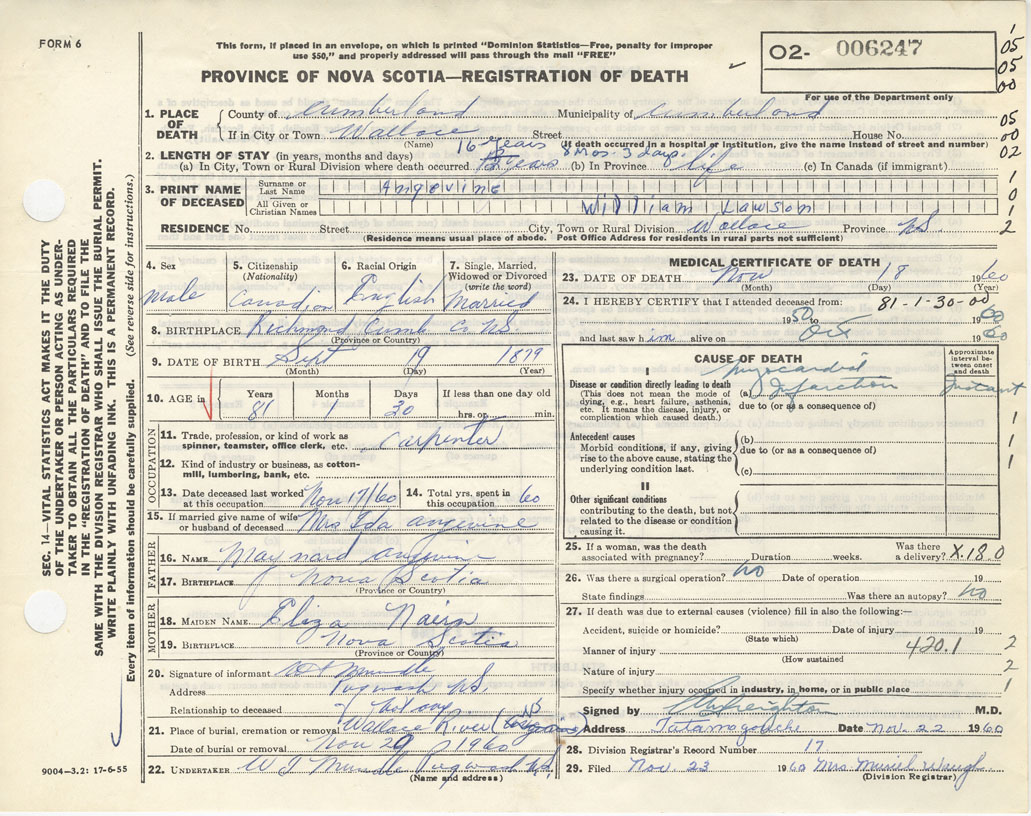 FORM 6
This form, if placed in an envelope, on which is printed "Dominion Statistics—Free, penalty for improper
use $50," and properly addressed will pass through the mail "FREE"
PROVINCE OF NOVA SCOTIA—REGISTRATION OF DEATH
O2- 006247
For use of the Department only
1
05
05
00
1. PLACE OF DEATH
County of Cumberland Municipality of Cumberland
05
If in City or Town Wallace Street House No.
00
(Name) (If death occurred in a hospital or institution, give the name instead of street and number)
02
16 years 8 Mos. 3 days
2. LENGTH OF STAY (in years, months and days)
(a) In City, Town or Rural Division where death occurred years (b) In Province life (c) In Canada (if immigrant)
3. PRINT NAME OF DECEASED
Surname or Last Name Angevine
1
All Given or Christian Names William Lawson
0
1
RESIDENCE No. Street City, Town or Rural Division Wallace Province N.S.
2
(Residence means usual place of abode. Post Office Address for residents in rural parts not sufficient)
SEC. 14—VITAL STATISTICS ACT MAKES IT THE DUTY
OF THE UNDERTAKER OR PERSON ACTING AS UNDER-
TAKER TO OBTAIN ALL THE PARTICULARS REQUIRED
IN THE "REGISTRATION OF DEATH" AND TO FILE THE
SAME WITH THE DIVISION REGISTRAR WHO SHALL ISSUE THE BURIAL PERMIT.
WRITE PLAINLY WITH UNFADING INK. THIS IS A PERMANENT RECORD.
Every item of information should be carefully supplied. (See reverse side for instructions.)
4. Sex Male
5. Citizenship (Nationality) Canadian
6. Racial Origin English
7. Single, Married, Widowed or Divorced (write the word) Married
8. BIRTHPLACE Richmond Cumb Co NS
(Province or Country)
9. DATE OF BIRTH Sept 19 1879
(Month) (Day) (Year)
10. AGE in Years 81 Months 1 Days 30 If less than one day old
hrs. or min.
OCCUPATION
11. Trade, profession, or kind of work as
spinner, teamster, office clerk, etc. Carpenter
12. Kind of industry or business, as cotton-
mill, lumbering, bank, etc.
13. Date deceased last worked at this occupation Nov 17/60
14. Total yrs. spent in this occupation 60
15. If married give name of wife
or husband of deceased Mrs Ida Angevine
FATHER
16. NAME Maynard Angevine
17. BIRTHPLACE Nova Scotia
(Province or Country)
MOTHER
18. MAIDEN NAME Eliza Nairn
19. BIRTHPLACE Nova Scotia
(Province or Country)
20. Signature of informant
Address Pugwash N.S.
Relationship to deceased
21. Place of burial, cremation or removal Wallace River NS
Date of burial or removal Nov 20 1960
22. UNDERTAKER W T Mundle Pugwash N.S.
(Name and address)
9004—3.2: 17-6-55
MEDICAL CERTIFICATE OF DEATH
23. DATE OF DEATH Nov 18 1960
(Month) (Day) (Year)
24. I HEREBY CERTIFY that I attended deceased from: 81-1-30-00
1950 1960
and last saw him alive on Oct 1960
CAUSE OF DEATH
Approximate interval between onset and death
I
Disease or condition directly leading to death
(This does not mean the mode of dying, e.g., heart failure, asthenia, etc. It means the disease, injury, or complication which caused death.)
(a) Myocardial Infarction Instant
due to (or as a consequence of)
1
Antecedent causes
Morbid conditions, if any, giving rise to the above cause, stating the underlying condition last.
(b)
due to (or as a consequence of)
1
(c)
1
II
Other significant conditions
contributing to the death, but not related to the disease or condition causing it.
25. If a woman, was the death associated with pregnancy? Duration weeks. Was there a delivery? X.18.0
26. Was there a surgical operation? no Date of operation 19
State findings Was there an autopsy? no
27. If death was due to external causes (violence) fill in also the following:—
Accident, suicide or homicide? Date of injury 19
(State which)
Manner of injury 420.1 2
(How sustained)
Nature of injury 2
Specify whether injury occurred in industry, in home, or in public place 1
Signed by M.D.
Address Tatamagouche Date Nov. 22 1960
28. Division Registrar's Record Number 17
29. Filed Nov. 23 1960 Mrs Muriel Waugh
(Division Registrar)